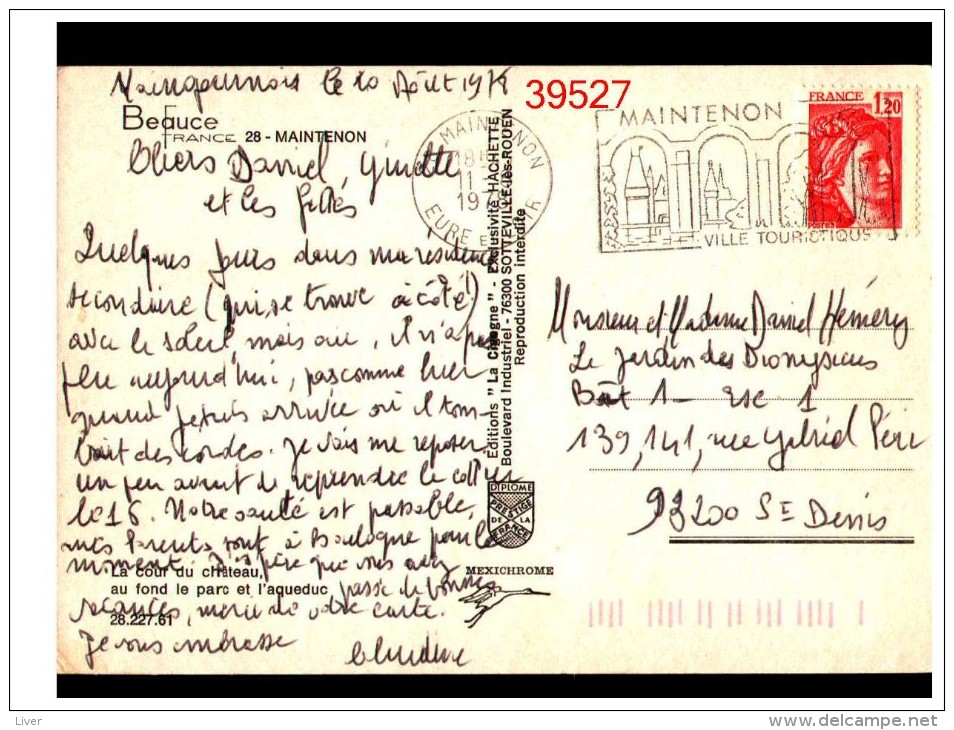 le 10 Août 197
39527
Beauce
FRANCE 28 - MAINTENON
Chers Daniel, Ginette
et les filles
Quelques jours dans ma résidence
secondaire (qui se trouve à côté)
avec le soleil, mais oui, il n'a pas
plu aujourd'hui, pas comme hier
quand je suis arrivée où il tom-
bait des cordes. Je vais me reposer
un peu avant de reprendre le collier
le 16. Notre santé est passable,
mes Parents sont à Boulogne pour le
moment. J'espère que vous avez
passé de bonnes
vacances, merci de votre carte.
Je vous embrasse
Claudine
La cour du château,
au fond le parc et l'aqueduc
28.227.61
MAINTENON
18H
11
197
EURE ET LOIR
MAINTENON
VILLE TOURISTIQUE
FRANCE 1,20
Editions "La Cigogne" - Exclusivité HACHETTE
Boulevard Industriel - 76300 SOTTEVILLE-lès-ROUEN
Reproduction interdite
DIPLOME
PRESTIGE
DE LA
FRANCE
MEXICHROME
Monsieur et Madame Daniel Hémery
Le Jardin des Dionysiens
Bât 1 - Esc 1
139, 141, rue Gabriel Péri
93200 St Denis
Liver
www.delcampe.net